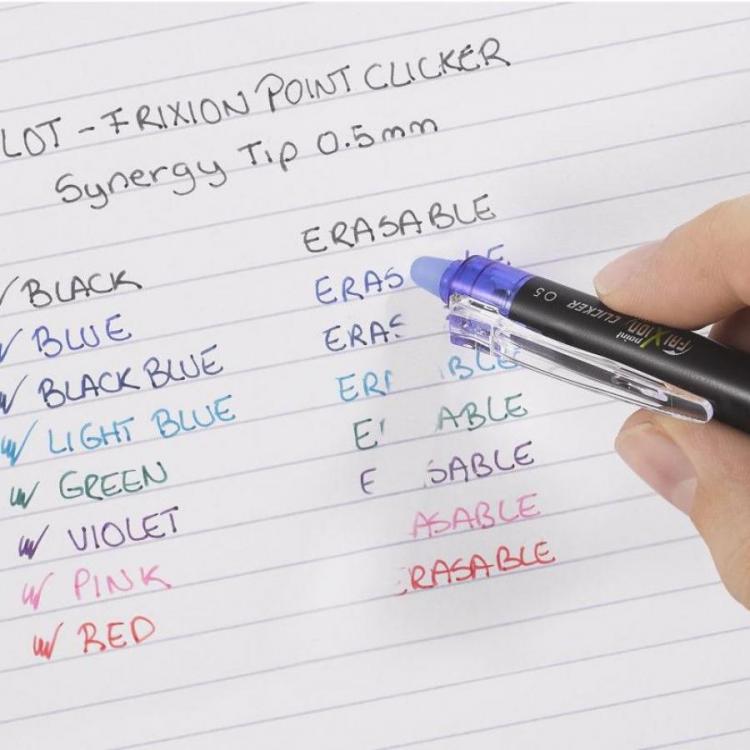 LOT - FRIXION POINT CLICKER
Synergy Tip 0.5mm
ERASABLE
BLACK
ERAS LE
BLUE
ERAS
BLACK BLUE
ER BLE
LIGHT BLUE
E ABLE
GREEN
E SABLE
VIOLET
ASABLE
PINK
RASABLE
RED
FRIXION point CLICKER 0.5